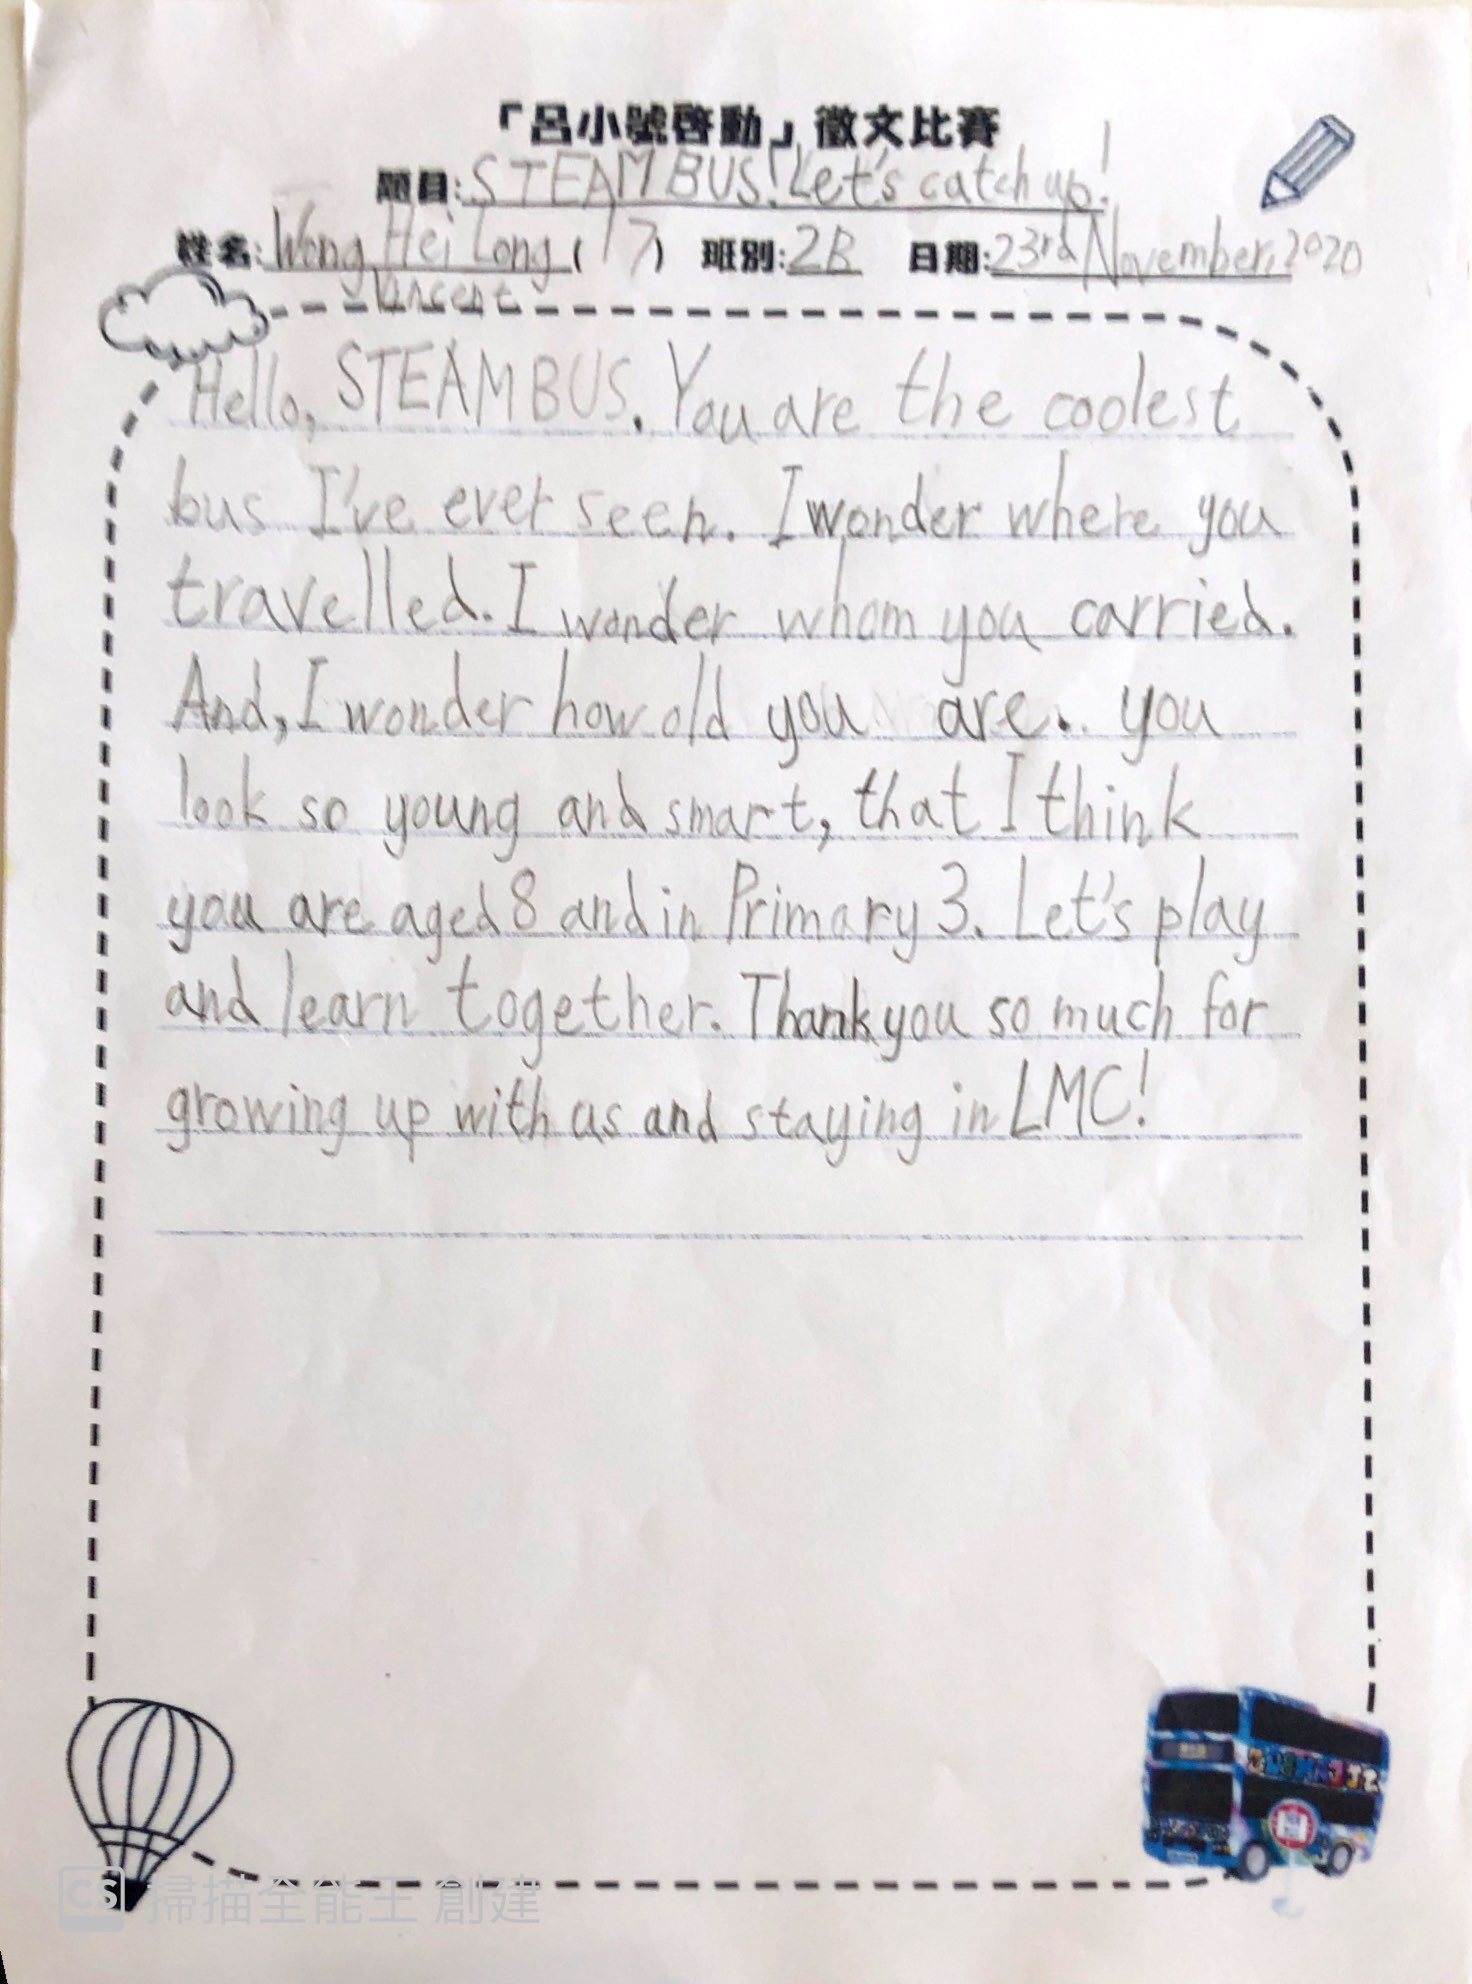 「呂小號啓動」徵文比賽
題目: STEAM BUS! Let's catch up!
姓名: Wong Hei Long (17) 班別: 2B 日期: 23rd November, 2020
Vincent
Hello, STEAM BUS. You are the coolest
bus I've ever seen. I wonder where you
travelled. I wonder whom you carried.
And, I wonder how old you are. you
look so young and smart, that I think
you are aged 8 and in Primary 3. Let's play
and learn together. Thank you so much for
growing up with us and staying in LMC!
CS 掃描全能王 創建